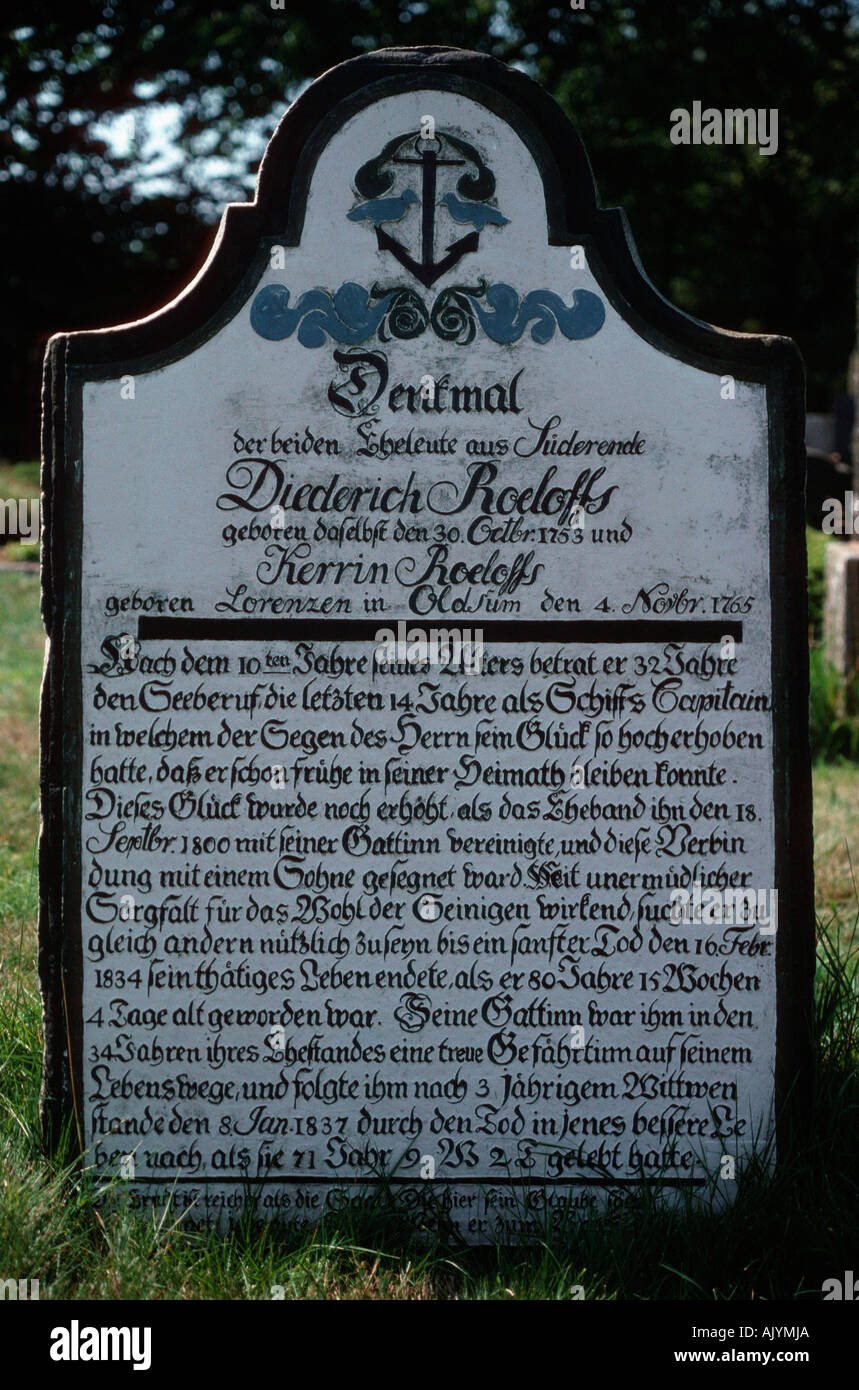 Denkmal
der beiden Eheleute aus Süderende
Diederich Roeloffs
geboren daselbst den 30. Octbr. 1753 und
Kerrin Roeloffs
geboren Lorenzen in Oldsum den 4. Novbr. 1765
Nach dem 10ten Jahre seines Alters betrat er 32 Jahre
den Seeberuf, die letzten 14 Jahre als Schiffs Capitain
in welchem der Segen des Herrn sein Glück so hoch erhoben
hatte, daß er schon frühe in seiner Heimath bleiben konnte.
Dieses Glück wurde noch erhöht, als das Eheband ihn den 18.
Septbr. 1800 mit seiner Gattinn vereinigte, und diese Verbin
dung mit einem Sohne gesegnet ward. Mit unermüdlicher
Sorgfalt für das Wohl der Seinigen wirkend, suchte er zu
gleich andern nützlich zu seyn bis ein sanfter Tod den 16. Febr.
1834 sein thätiges Leben endete, als er 80 Jahre 15 Wochen
4 Tage alt geworden war. Seine Gattinn war ihm in den
34 Jahren ihres Ehestandes eine treue Gefährtinn auf seinem
Lebenswege, und folgte ihm nach 3 jährigem Wittwen
stande den 8. Jan. 1837 durch den Tod in jenes bessere Le
ben nach, als sie 71 Jahr 9 W 2 T gelebt hatte.
reicher als die Saat die hier sein Glaube
er zum
alamy
alamy
Image ID: AJYMJA
www.alamy.com